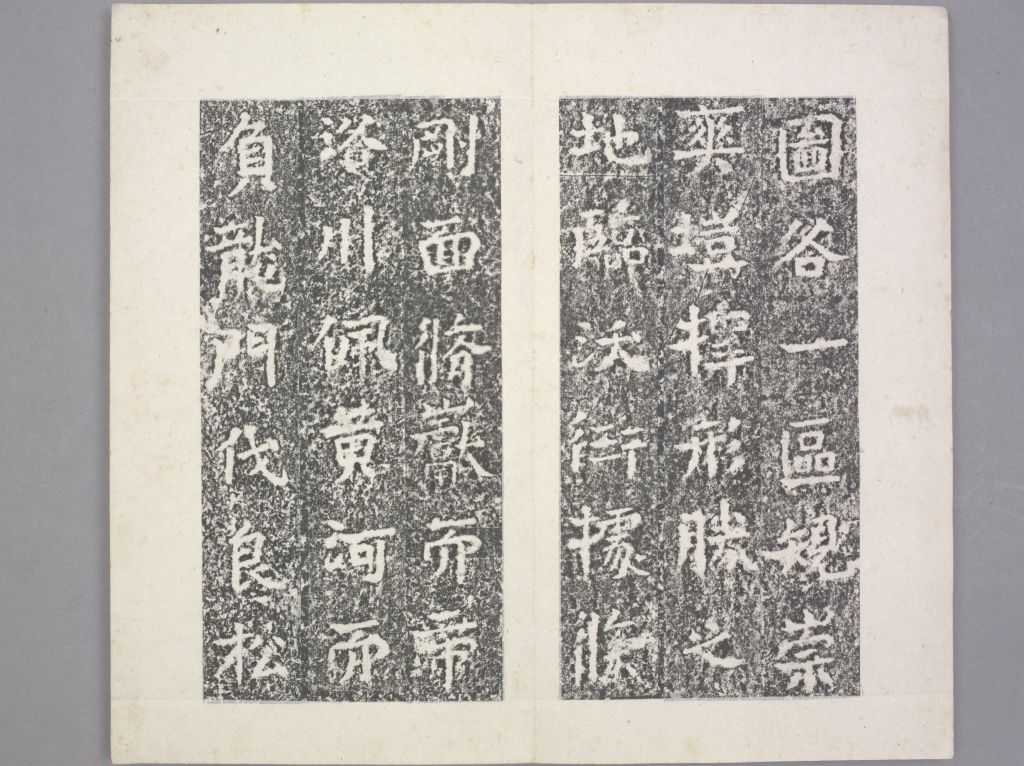 圖各一區規崇
爽塏擇形勝之
地臨沃衍據條
剛面脩巘而帶
川佩黃河而
負龍門伐良松